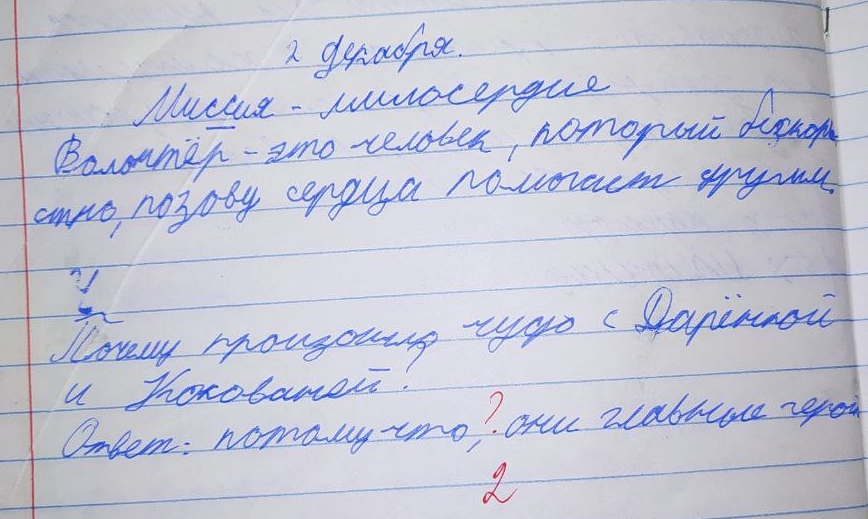 2 декабря.
Миссия - милосердие
Волонтёр - это человек, который бескоры
стно, позову сердца помогает другим
Почему произошло чудо с Дарёнкой
и Кокованей?
Ответ: потомучто, ? они главные герои
2